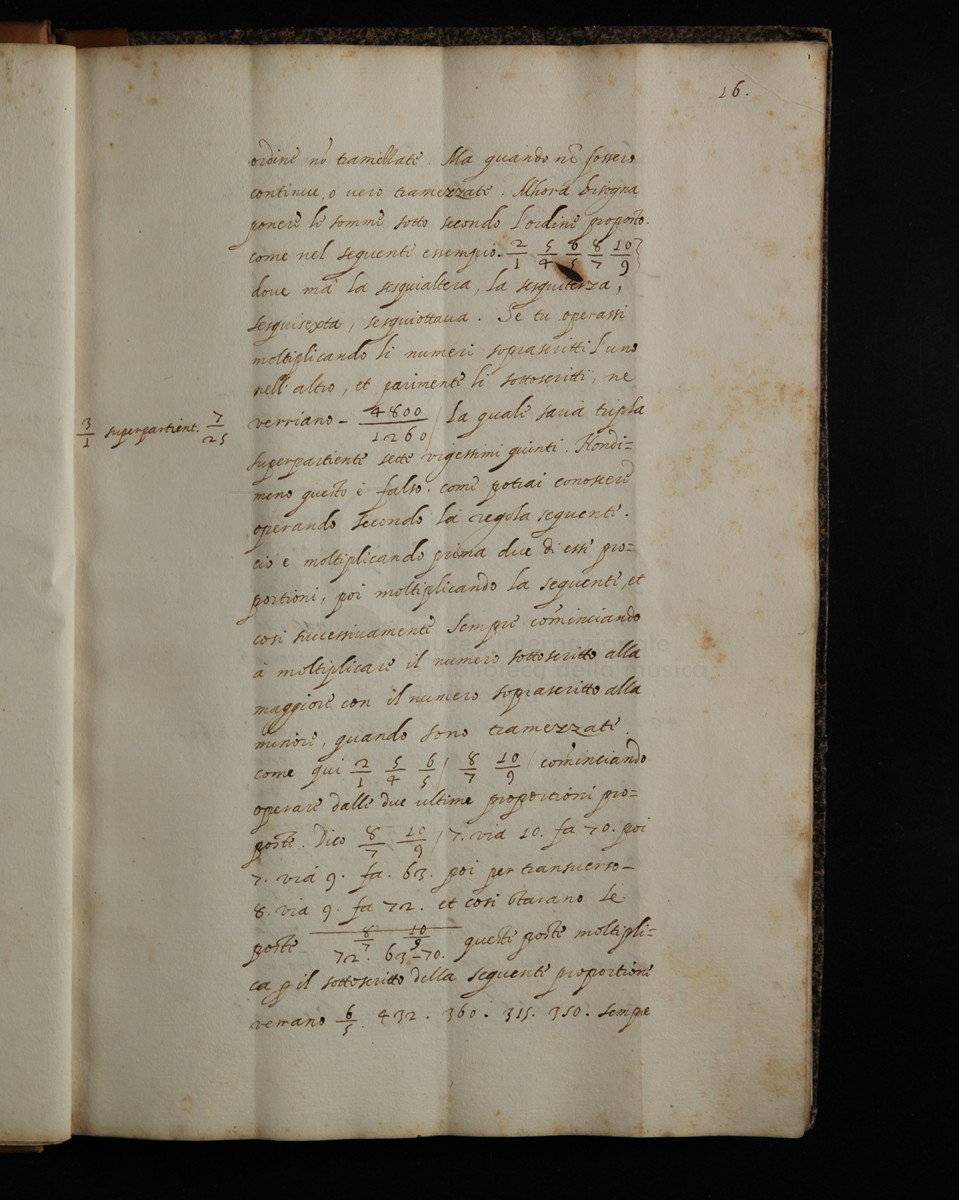 16.
ordine nō tramellate. Ma quando nō fossero
continue, o uero tramezzate. Alhora bisogna
ponere le somme sotto secondo l'ordine proposto.
come nel seguente essempio. 2/1 5/4 6/5 8/7 10/9
doue mā la sesquialtera, la sesquiterza,
sesquisexta, sesquiottaua. Se tu operassi
moltiplicando li numeri soprascritti l'uno
nell'altro, et parimente li sottoscritti, ne
verriano - 4800/1260 / La quale saria tripla
3/1 superpartient. 7/25
superpartiente sette vigessimi quinti. Nondi=
meno questo è falso. come potrai conoscere
operando secondo la regola seguente.
cio e moltiplicando prima due di essi pro=
portioni, poi moltiplicando la seguente, et
cosi successiuamente Sempre cōminciando
à moltiplicare il numero sottoscritto alla
maggiore con il numero soprascritto alla
minore, quando sono tramezzate.
come qui 2/1 5/4 6/5 / 8/7 10/9 / cōminciando
operare dalle due ultime proportioni pro=
poste. Dico 8/7 10/9 / 7. via 10. fa 70. poi
7. via 9. fa. 63. poi per transuerso-
8. via 9. fa 72. et cosi starano le
poste 8/7 10/9 72. 63-70. queste poste moltipli=
ca p il sottoscritto della seguente proportione
verrano 6/5 432. 360. 315. 350. sempre